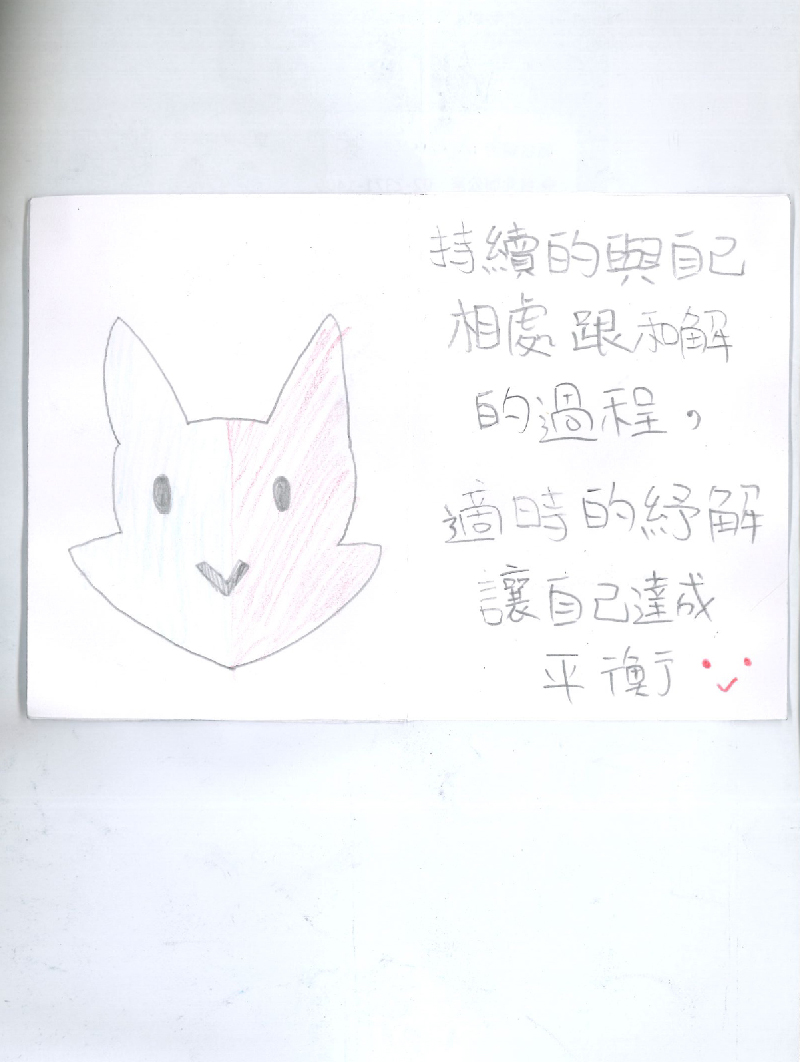 持續的與自己
相處跟和解
的過程，
適時的紓解
讓自己達成
平衡